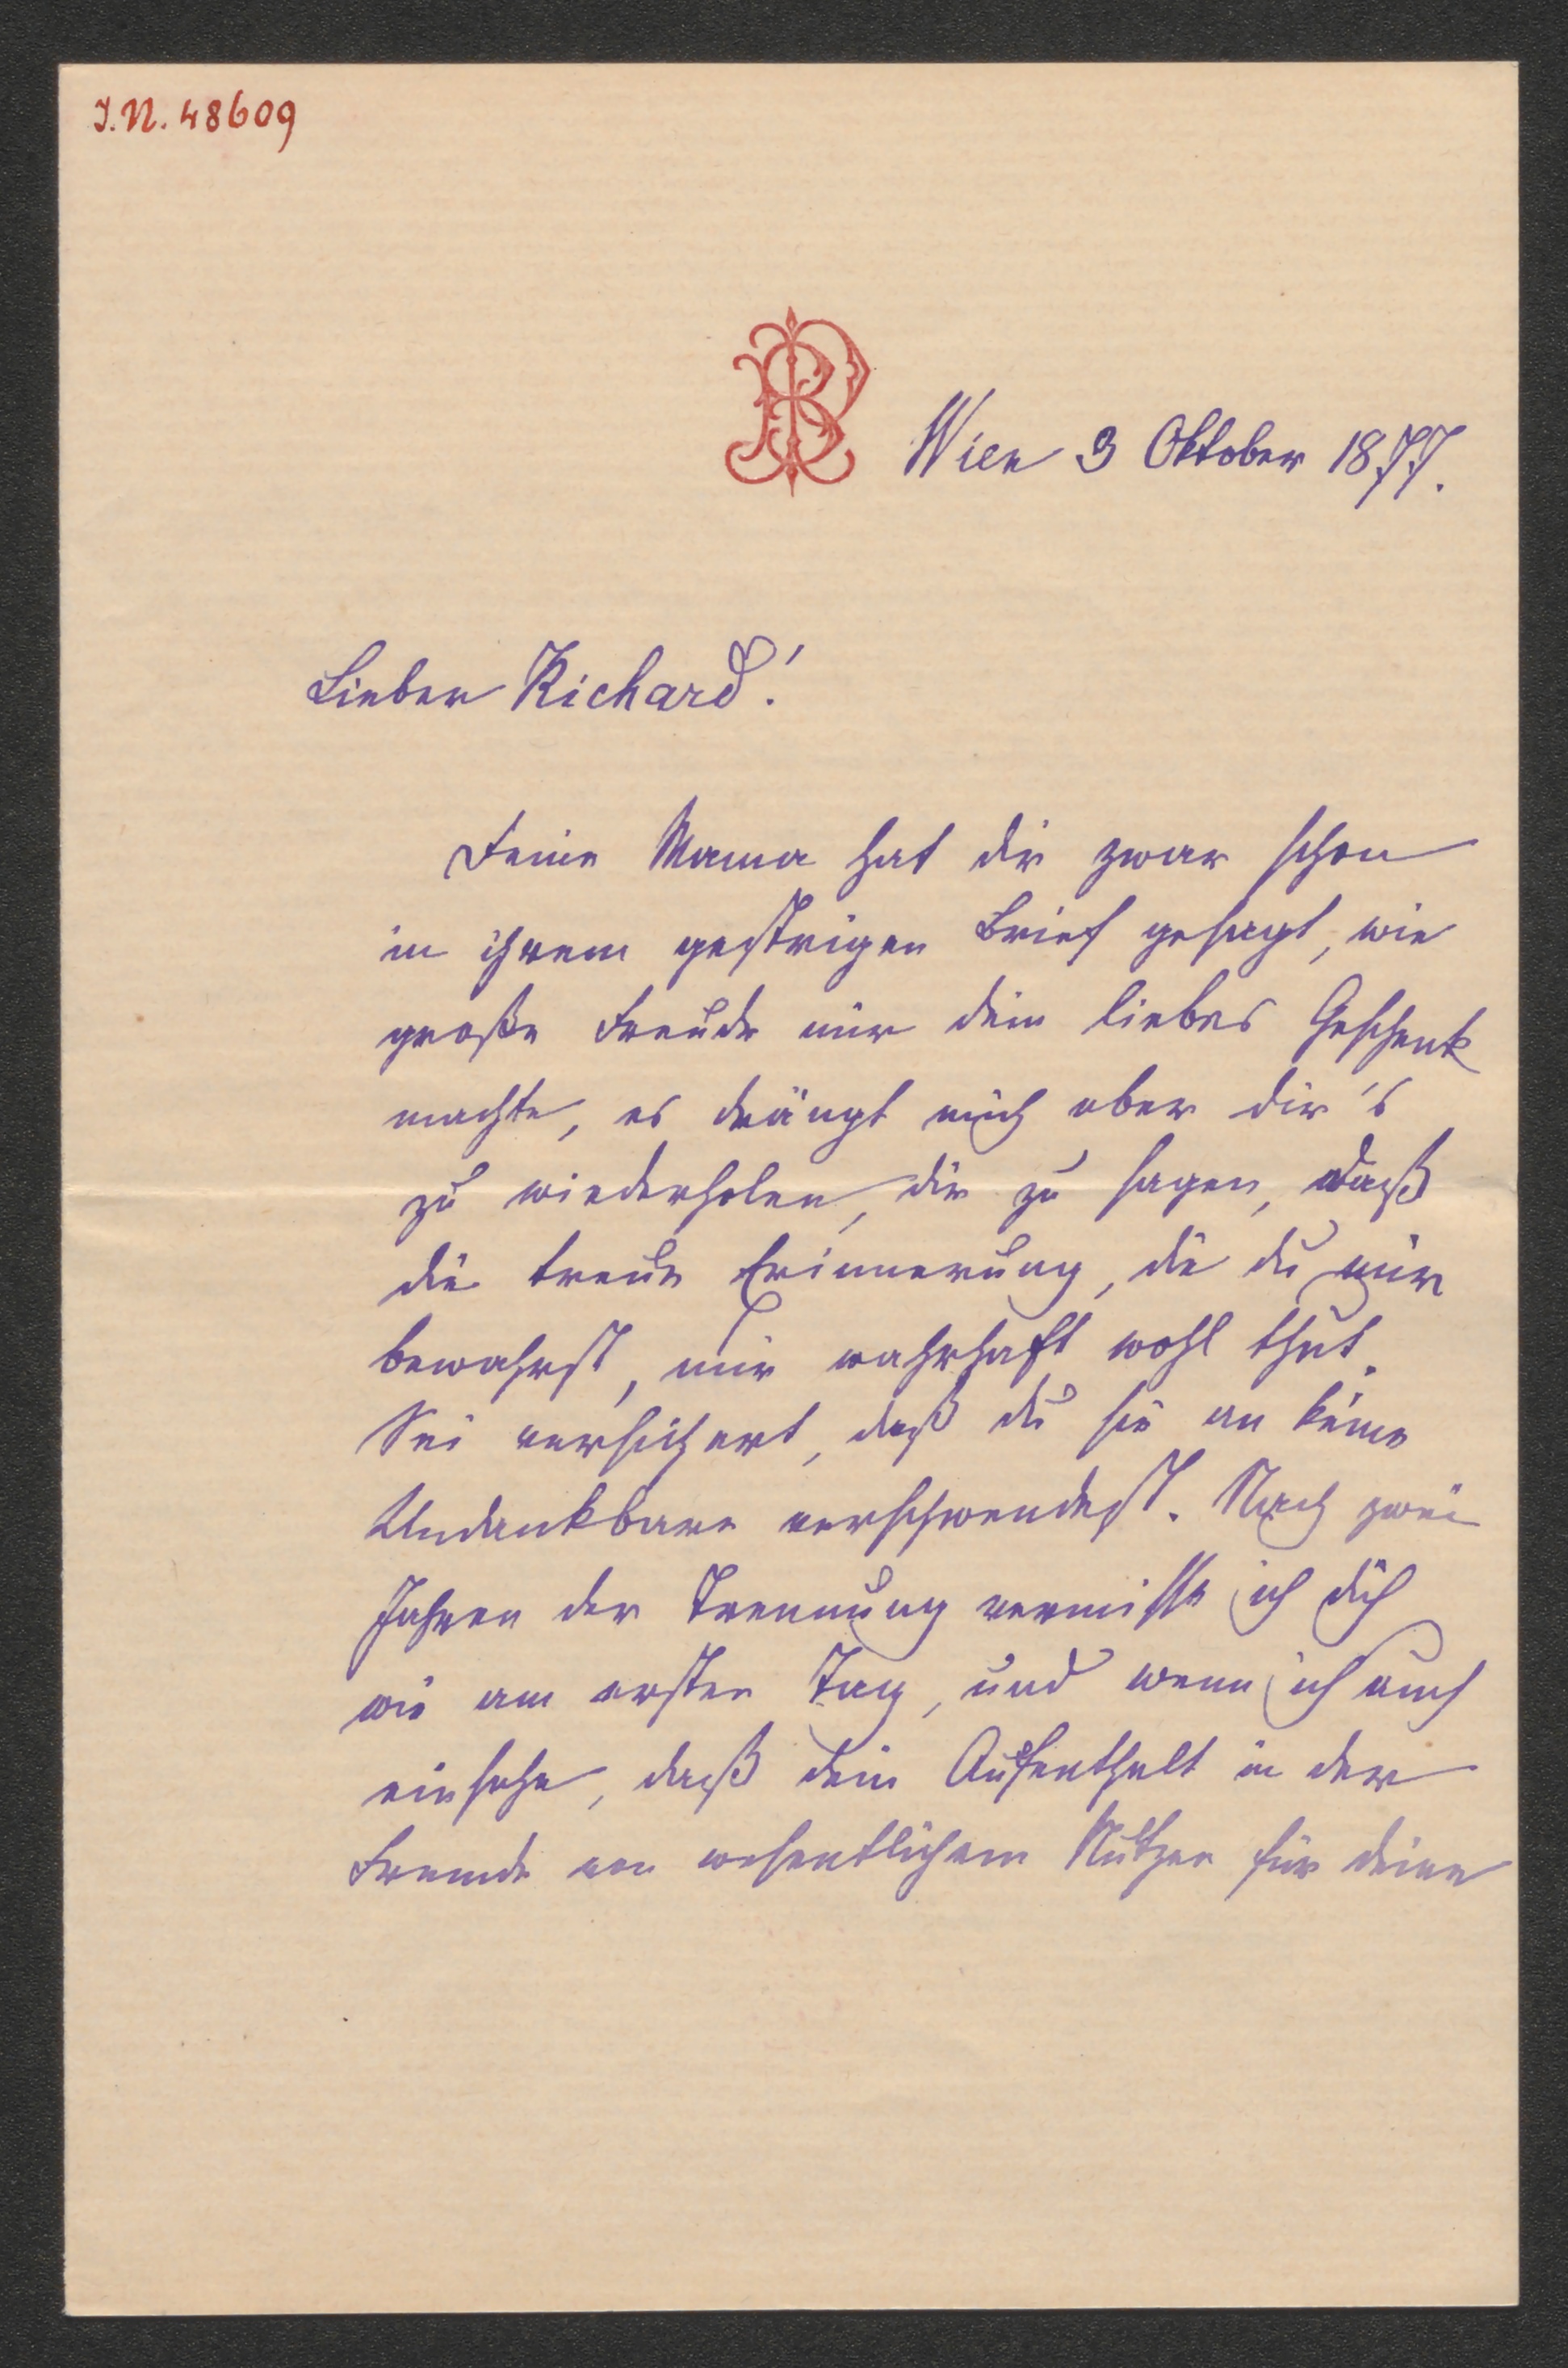 I.N. 48609
Wien 3 Oktober 1877.
Lieber Richard!
Deine Mama hat dir zwar schon
in ihrem gestrigen Brief gesagt, wie
große Freude mir dein liebes Geschenk
machte, es drängt mich aber dir's
zu wiederholen, dir zu sagen, daß
die treue Erinnerung, die du mir
bewahrst, mir wahrhaft wohl thut.
Sei versichert, daß du sie an keine
Undankbare verschwendest. Nach zwei
Jahren der Trennung vermisse ich dich
wie am ersten Tag, und wenn ich auch
einsehe, daß dein Aufenthalt in der
Fremde von wesentlichem Nutzen für deine